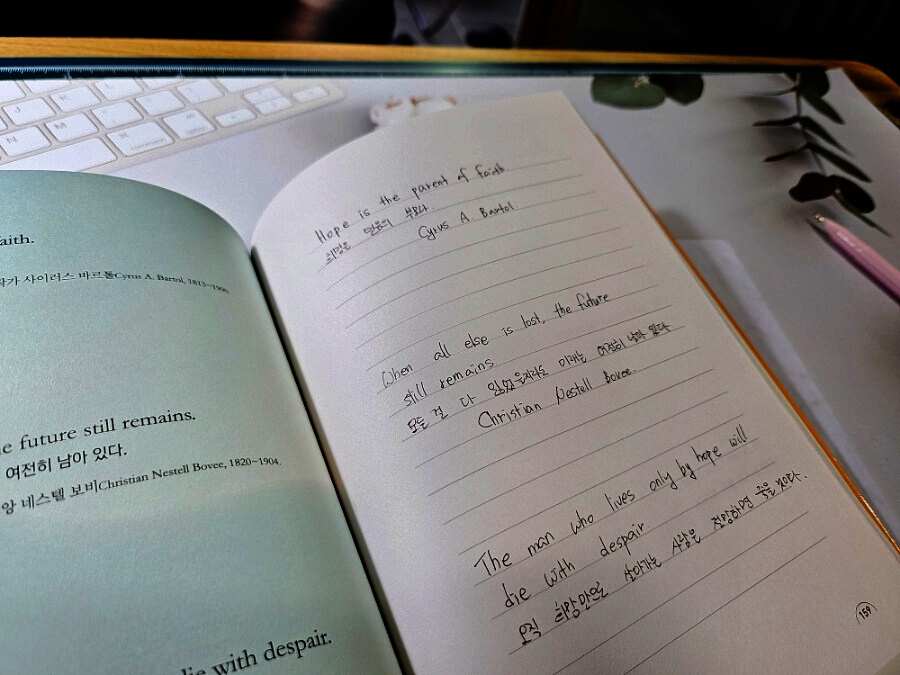 aith.
작가 사이러스 바르톨Cyrus A. Bartol, 1813~1900
e future still remains.
여전히 남아 있다.
앙 네스텔 보비Christian Nestell Bovee, 1820~1904.
die with despair.
Hope is the parent of faith
희망은 믿음의 부모다.
Cyrus A. Bartol.
When all else is lost, the future
still remains
모든 걸 다 잃었을지라도 미래는 여전히 남아 있다
Christian Nestell Bovee.
The man who lives only by hope will
die with despair.
오직 희망만으로 살아가는 사람은 절망하며 죽을 것이다.
159
N
M
J
K
L
command
option